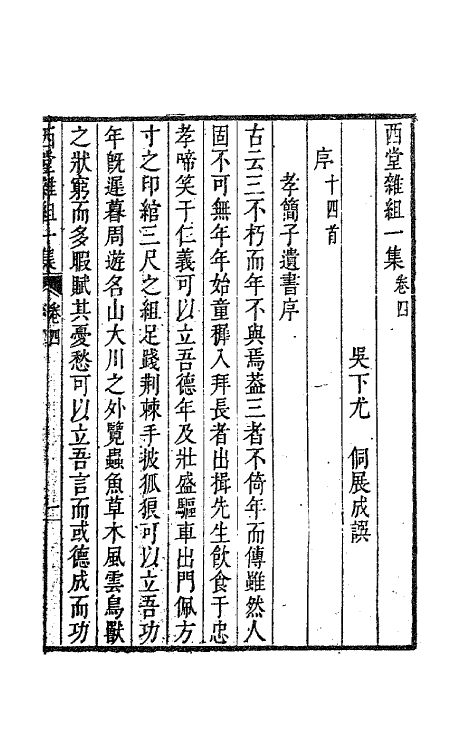 西堂雜組一集卷四
吳下尤　侗展成譔
序十四首
孝簡子遺書序
古云三不朽而年不與焉葢三者不倚年而傳雖然人
固不可無年年始童穉入拜長者出揖先生飮食于忠
孝啼笑于仁義可以立吾德年及壯盛驅車出門佩方
寸之印綰三尺之組足踐荆棘手披狐狠可以立吾功
年旣遲暮周遊名山大川之外覽蟲魚草木風雲鳥獸
之狀窮而多暇賦其憂愁可以立吾言而或德成而功
西堂雜組一集　卷四　一